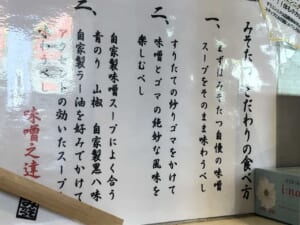 みそたつこだわりの食べ方
一、まずはみそたつ自慢の味噌
スープをそのまま味わうべし
二、すりたての炒りゴマをかけて
味噌とゴマの絶妙な風味を
楽しむべし
三、自家製味噌スープによく合う
青のり 山椒 自家製黒八味
自家製ラー油を好みでかけて
アクセントの効いたスープ
味わうべし
味噌之達
i:no